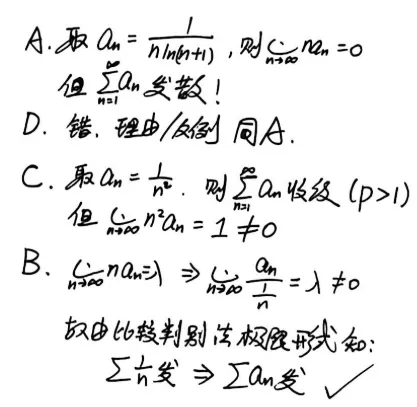 A. 取 an = 1/(n ln(n+1)), 则 lim n→∞ nan = 0
但 ∞∑n=1 an 发散!
D. 错. 理由/反例 同A.
C. 取 an = 1/n². 则 ∞∑n=1 an 收敛 (p>1)
但 lim n→∞ n²an = 1 ≠ 0
B. lim n→∞ nan = λ ⇒ lim n→∞ an/(1/n) = λ ≠ 0
故由比较判别法极限形式知:
∑ 1/n 发 ⇒ ∑an 发 ✓